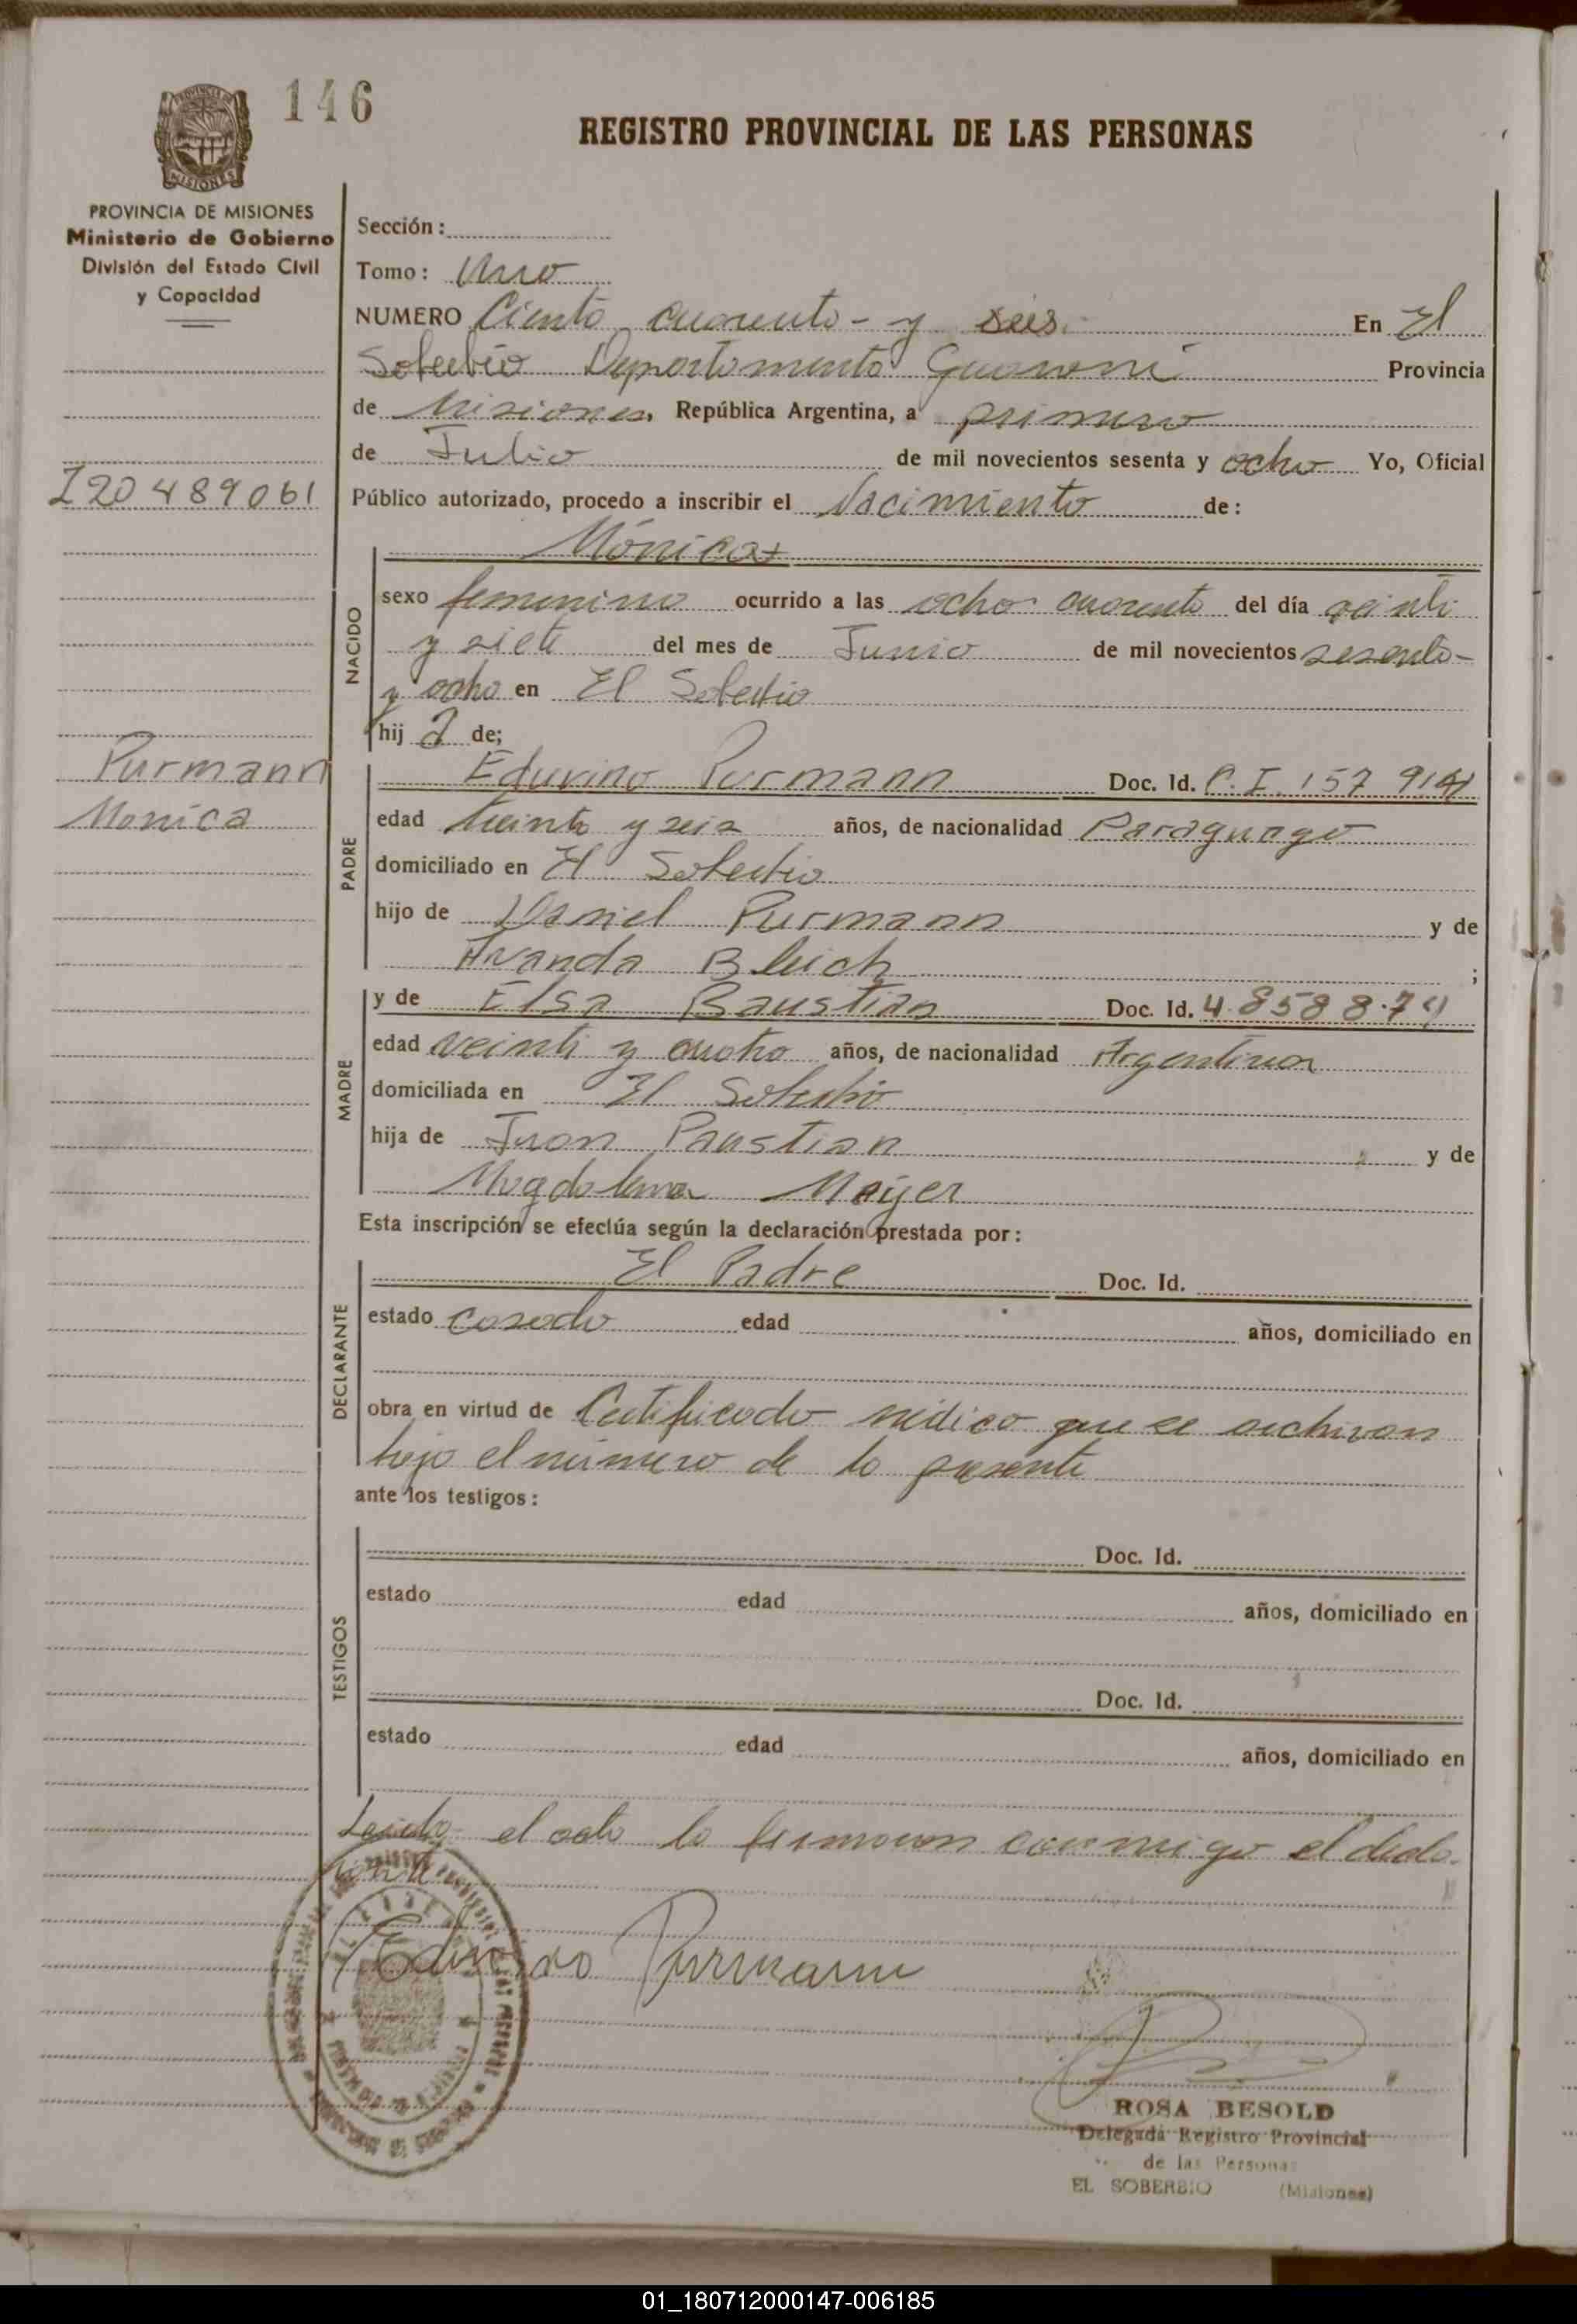 146
REGISTRO PROVINCIAL DE LAS PERSONAS
MISIONES
PROVINCIA DE MISIONES
Ministerio de Gobierno
División del Estado Civil
y Capacidad
Sección:
Tomo: Uno
NUMERO Ciento cuarenta - y seis. En El
Soberbio Departamento Guarani Provincia
de Misiones, República Argentina, a primero
de Julio de mil novecientos sesenta y ocho Yo, Oficial
I 20489061
Público autorizado, procedo a inscribir el Nacimiento de:
Mónica
NACIDO
sexo femenino ocurrido a las ocho cuarenta del día veinti
y siete del mes de Junio de mil novecientos sesenta-
y ocho en El Soberbio
hij a de;
Purmann
Monica
PADRE
Eduvino Purmann Doc. Id. C.I. 157 914
edad treinta y seis años, de nacionalidad Paraguayo
domiciliado en El Soberbio
hijo de Daniel Purmann y de
Wanda Bleich ;
MADRE
y de Elsa Baustian Doc. Id. 4.858 8.74
edad veinti y cuatro años, de nacionalidad Argentina
domiciliada en El Soberbio
hija de Juan Paustian y de
Magdalena Mayer
Esta inscripción se efectúa según la declaración prestada por:
DECLARANTE
El Padre Doc. Id.
estado casado edad años, domiciliado en
obra en virtud de Certificado médico que se archivan
bajo el número de la presente
ante los testigos:
TESTIGOS
Doc. Id.
estado edad años, domiciliado en
Doc. Id.
estado edad años, domiciliado en
Leida el acta la firmaron conmigo el decla-
rante
Purmann
ROSA BESOLD
Delegada Registro Provincial
de las Personas
EL SOBERBIO (Misiones)
01_180712000147-006185